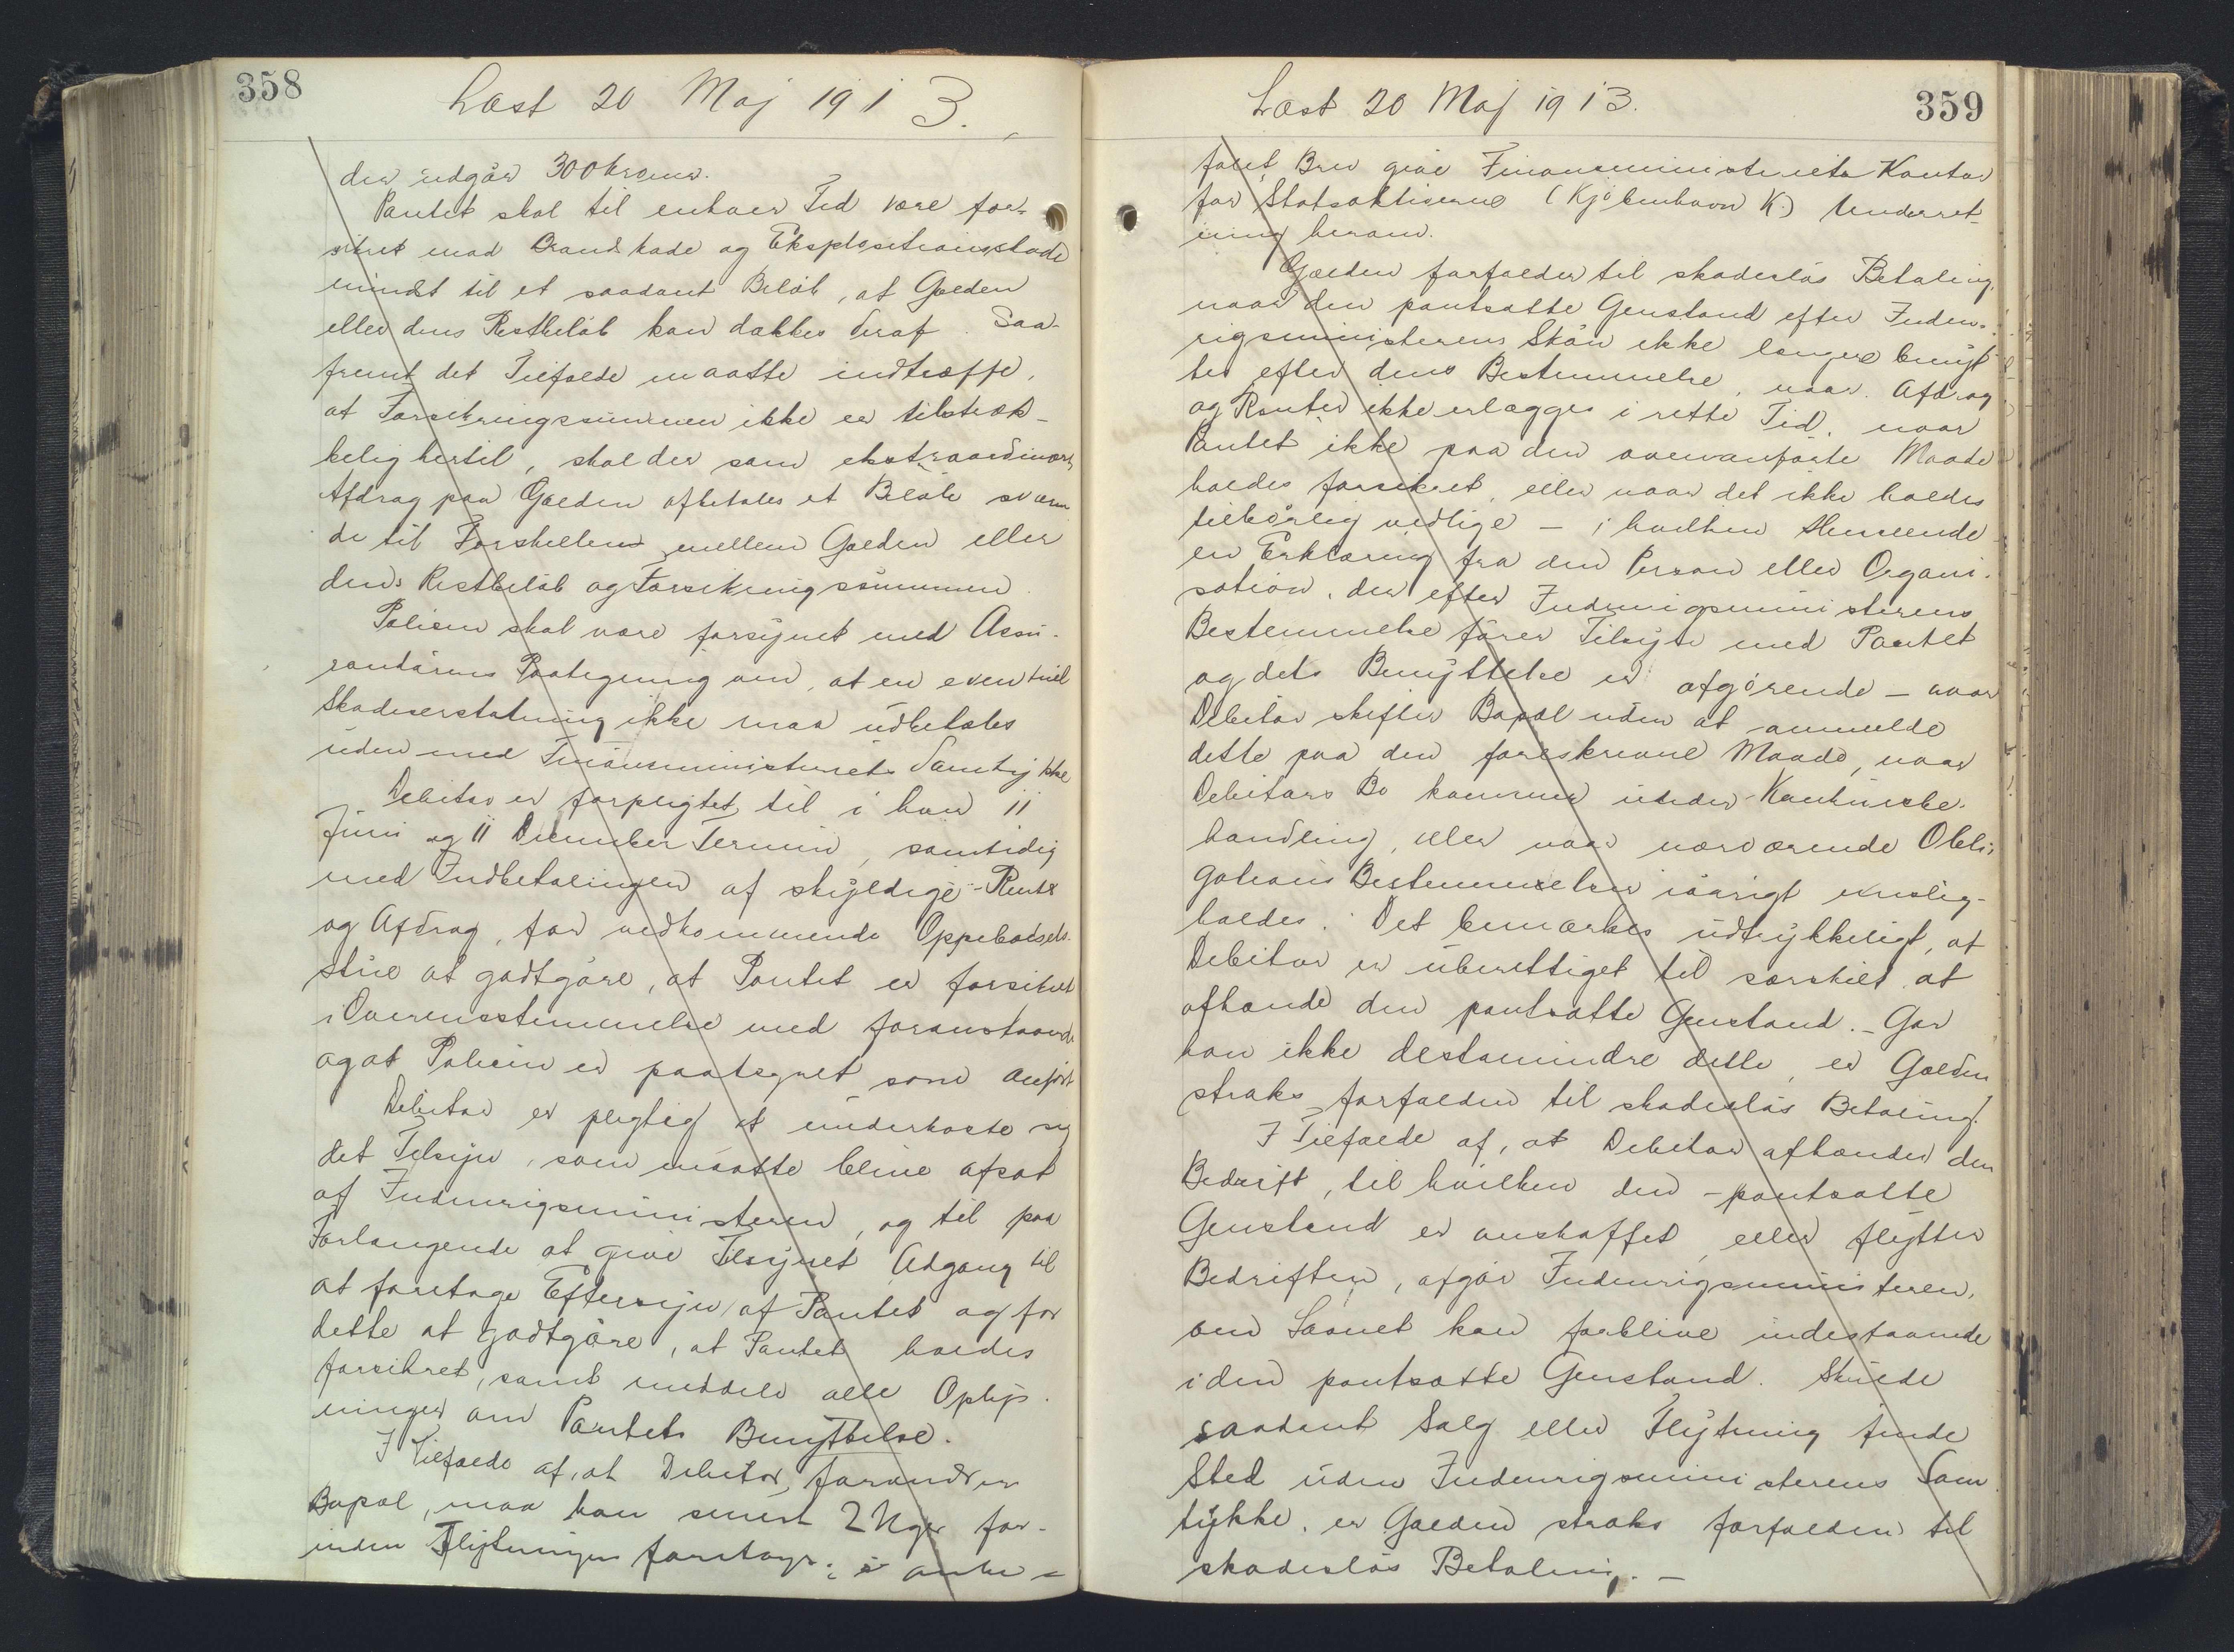 358
Læst 20 Maj 1913.
der udgår 300 kroner.
Pantet skal til enhver Tid være for-
sikret mod Brandskade og Eksplosionsskade
mindst til et saadant Beløb, at Gælden
eller dens Restbeløb kan dækkes deraf. Saa-
fremt det Tilfælde maatte indtræffe,
at Forsikringssummen ikke er tilstræk-
kelig hertil, skal der som ekstraordinært
Afdrag paa Gælden afbetales et Beløb svaren
de til Forskellen mellem Gælden eller
dens Restbeløb og Forsikringssummen
Policen skal være forsynet med Assu-
randørens Paategning om, at en eventuel
Skadeserstatning ikke maa udbetales
uden med Finansministeriets Samtykke
Debitor er forpligtet til i hver 11
Juni og 11 December Termin, samtidig
med Indbetalingen af skyldige Rente
og Afdrag, for vedkommende Oppebørsels-
stue at godtgøre, at Pantet er forsikret
i Overensstemmelse med foranstaaende
og at Policen er paategnet som anført
Debitor er pligtig at underkaste sig
det Tilsyn, som maatte blive afsat
af Indenrigsministeren, og til paa
Forlangende at give Tilsynet Adgang til
at foretage Eftersyn af Pantet og for
dette at godtgøre, at Pantet holdes
forsikret, samt meddele alle Oplys-
ninger om Pantets Benyttelse.
I Tilfælde af, at Debitor forandrer
Bopæl, maa han senest 2 Uger for-
inden Flytningen foretages, i anbe-
359
Læst 20 Maj 1913.
falet Brev give Finansministeriets Kontor
for Statsaktiverne (Kjøbenhavn K) Underret-
ning herom.
Gælden forfalder til skadesløs Betaling,
naar den pantsatte Genstand efter Inden-
rigsministerens Skøn ikke længere benyt
tes efter dens Bestemmelse, naar Afdrag
og Renter ikke erlægges i rette Tid, naar
Pantet ikke paa den ovenanførte Maade
holdes forsikret, eller naar det ikke holdes
tilbørlig vedlige — i hvilken Henseende
en Erklæring fra den Person eller Organi-
sation, der efter Indenrigsministerens
Bestemmelse fører Tilsyn med Pantet
og dets Benyttelse er afgørende — naar
Debitor skifter Bopæl uden at anmelde
dette paa den foreskrevne Maade, naar
Debitors Bo kommer under Konkursbe-
handling, eller naar nærværende Obli-
gations Bestemmelser iøvrigt euslig-
holdes. Det bemærkes udtrykkeligt, at
Debitor er uberettiget til særskilt at
afhænde den pantsatte Genstand. – Gør
han ikke destomindre dette, er Gælden
straks forfalden til skadesløs Betaling.
I Tilfælde af, at Debitor afhænder den
Bedrift, til hvilken den pantsatte
Genstand er anskaffet, eller flytter
Bedriften, afgør Indenrigsministeren,
om Laanet kan forblive indestaaende
i den pantsatte Genstand. Skulde
saadant Salg eller Flytning finde
Sted uden Indenrigsministerens Sam
tykke, er Gælden straks forfalden til
skadesløs Betaling. —